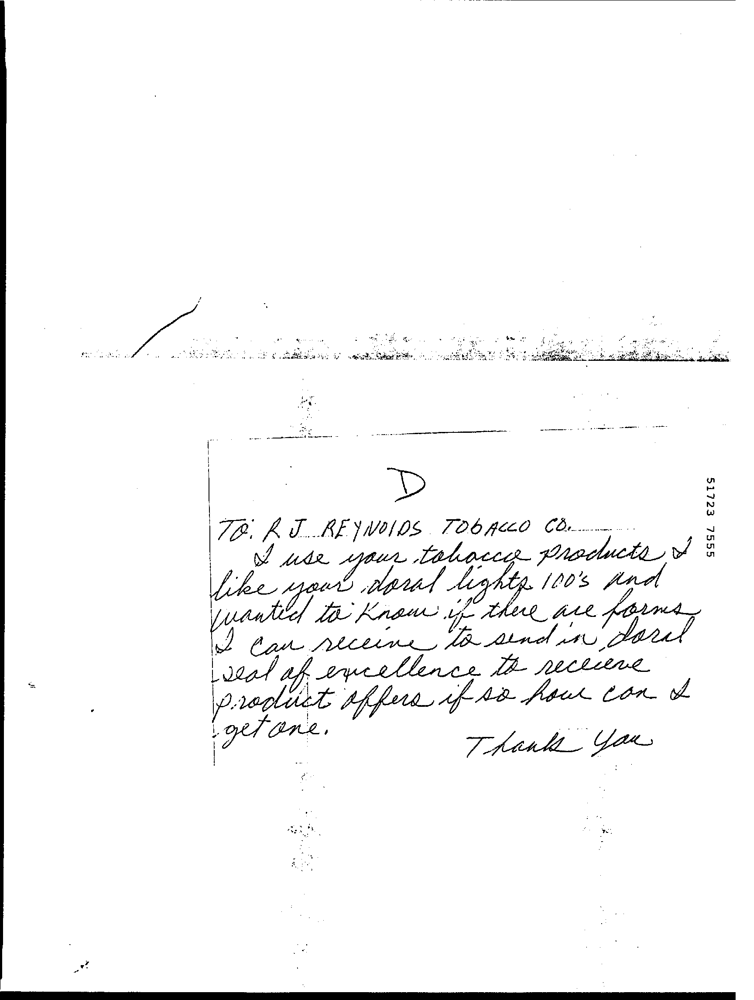 D
TO: R J REYNOLDS TOBACCO CO.
I use your tobacco products I
like your doral lights 100's and
wanted to know if there are forms
I can receive to send in doral
seal of excellence to receieve
product offers if so how can I
get one.
Thank You
51723 7555